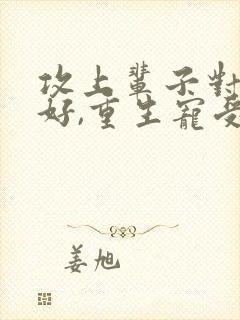 攻上輩子對
好,重生寵受
姜旭